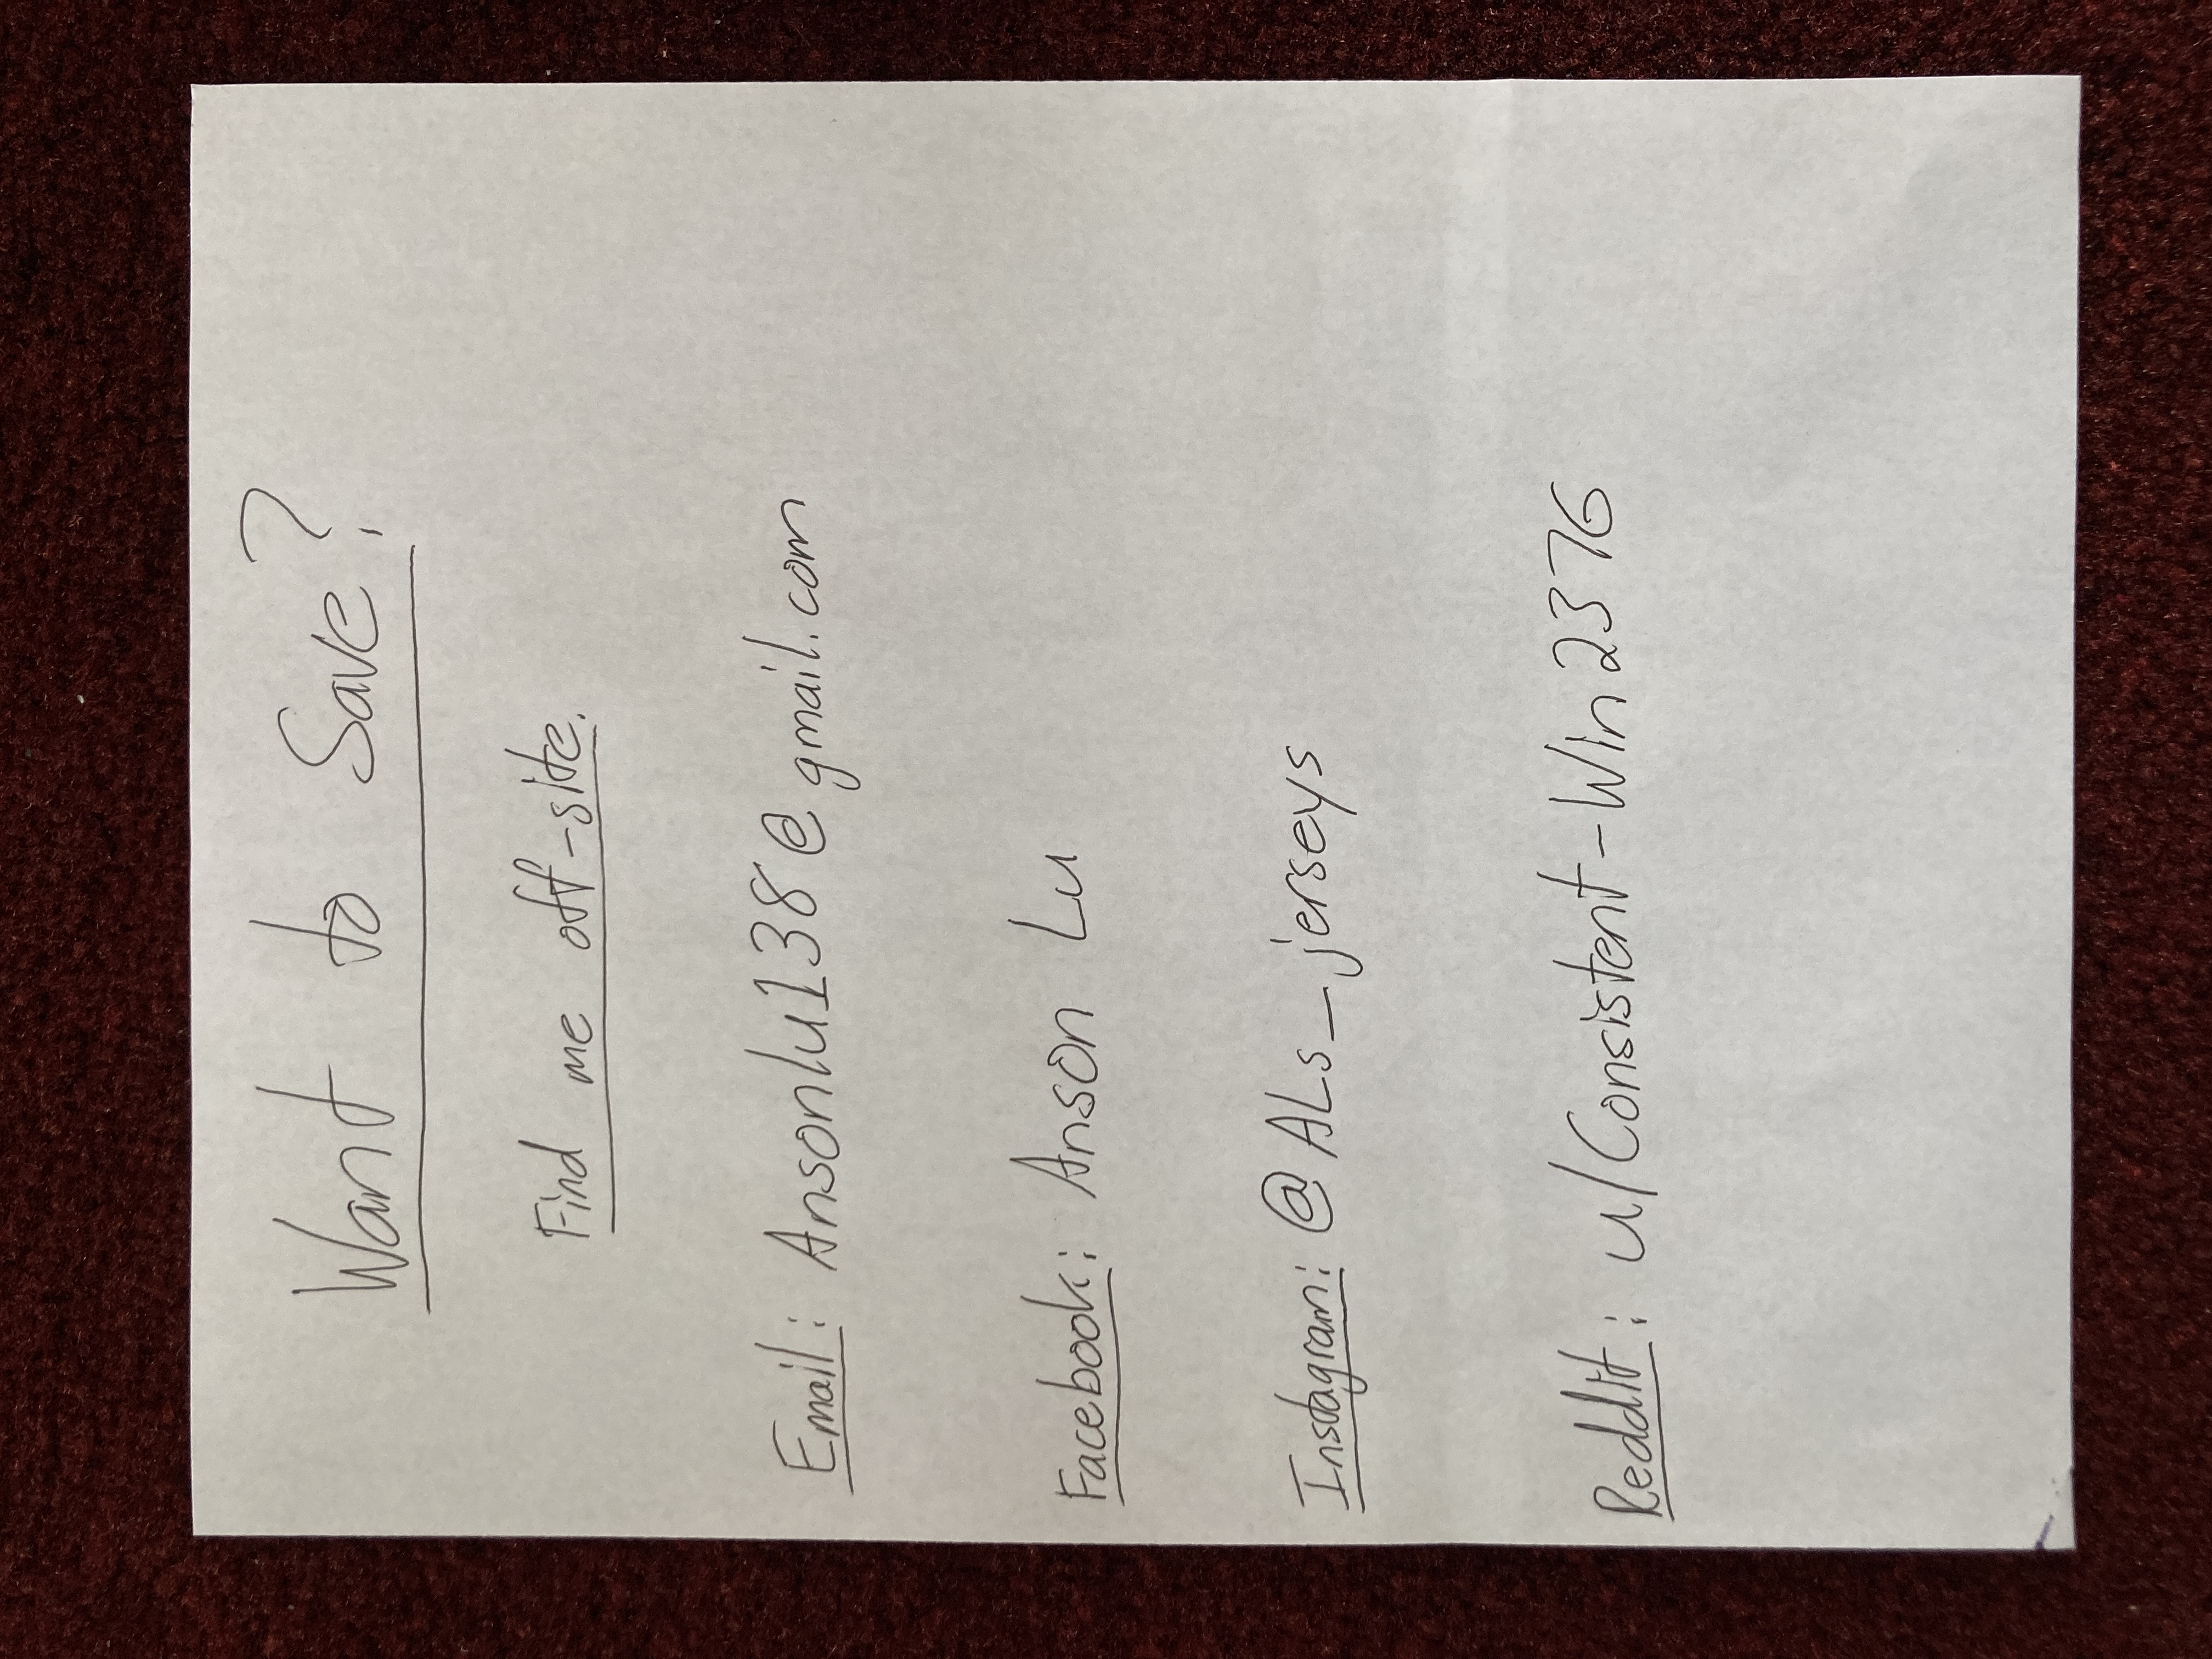 Want to Save?
Find me off-site.
Email: Ansonlu138@gmail.com
Facebook: Anson Lu
Instagram: @ALs_jerseys
Reddit: u/Consistent-Win2376